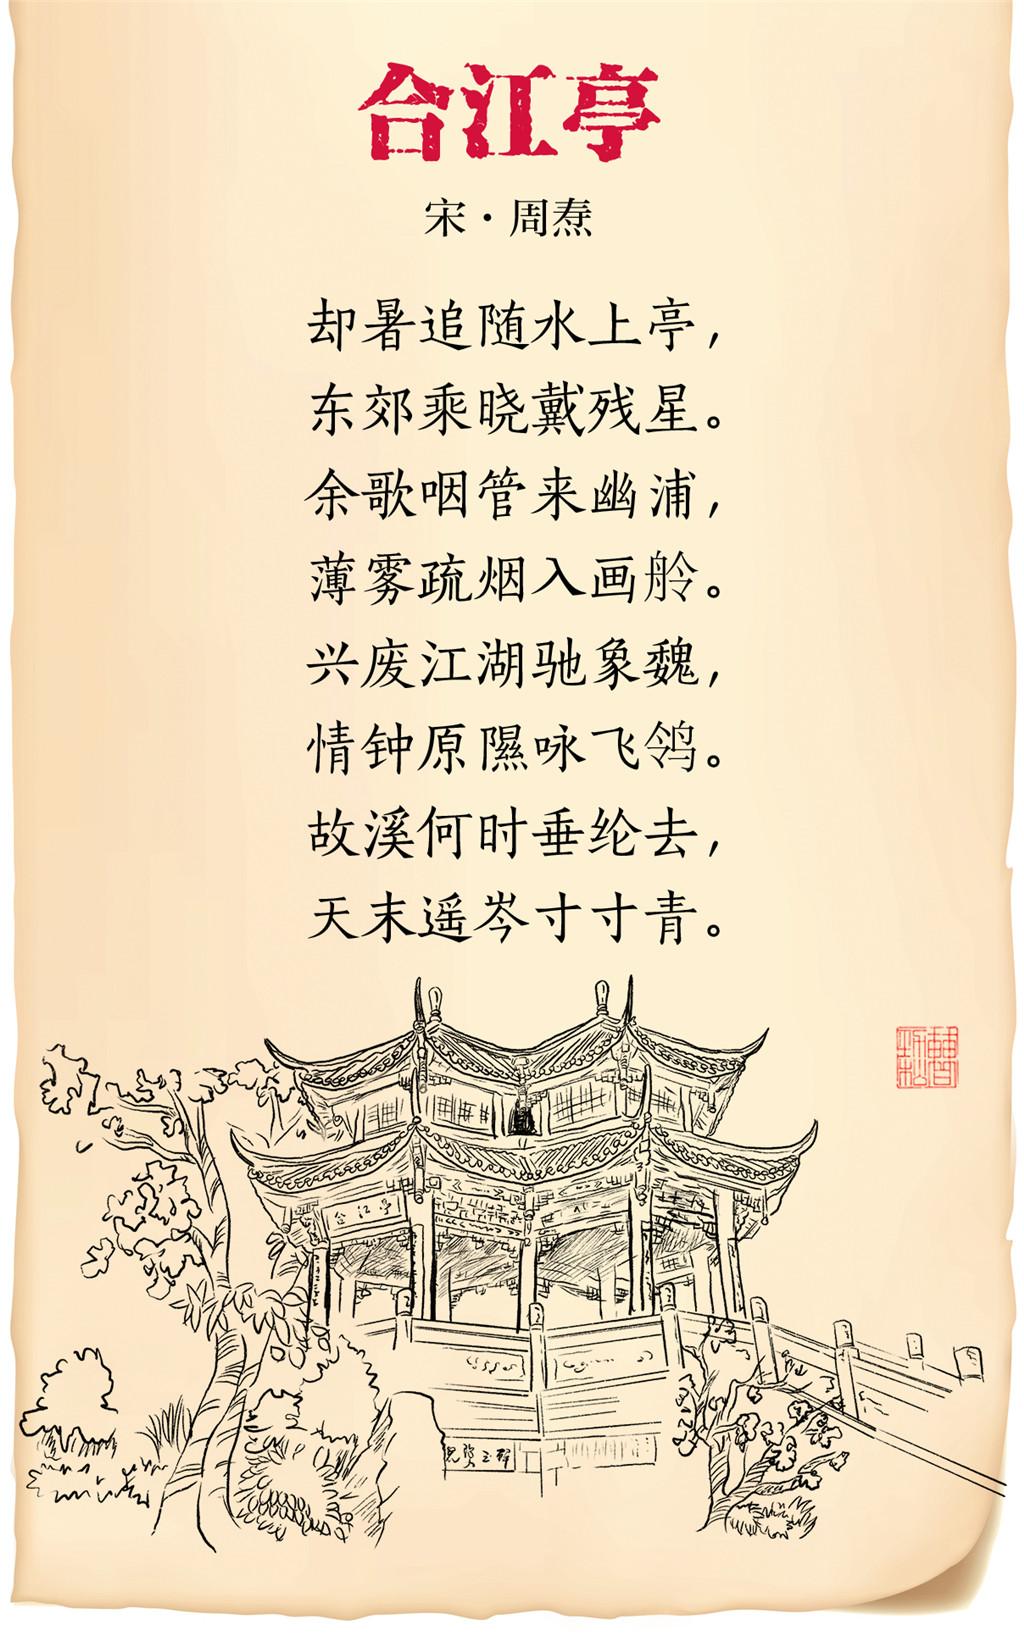 合江亭
宋·周焘
却暑追随水上亭，
东郊乘晓戴残星。
余歌咽管来幽浦，
薄雾疏烟入画舲。
兴废江湖驰象魏，
情钟原隰咏飞鸰。
故溪何时垂纶去，
天末遥岑寸寸青。
合江亭